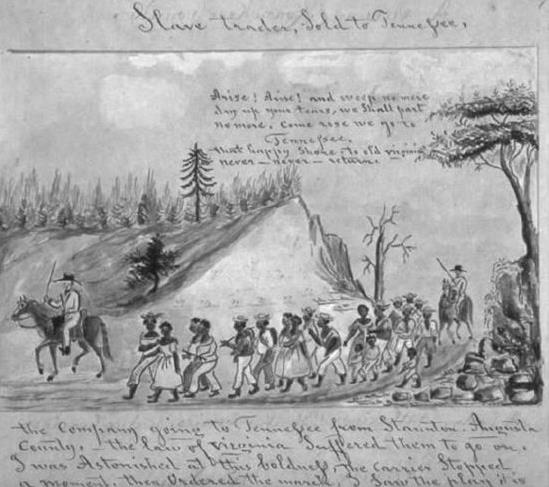 Slave trader, Sold to Tennessee,
Arise! Arise! and weep no more
dry up your tears, we shall part
no more. Come rose we go to
Tennessee,
that happy shore, to old virginia
never – never – return.
the Company going to Tennessee from Staunton. Augusta
County, – the law of virginia Suffered them to go on.
I was Astonished at this boldness, the carrier Stopped
a moment, then Ordered the march, I Saw the play it is